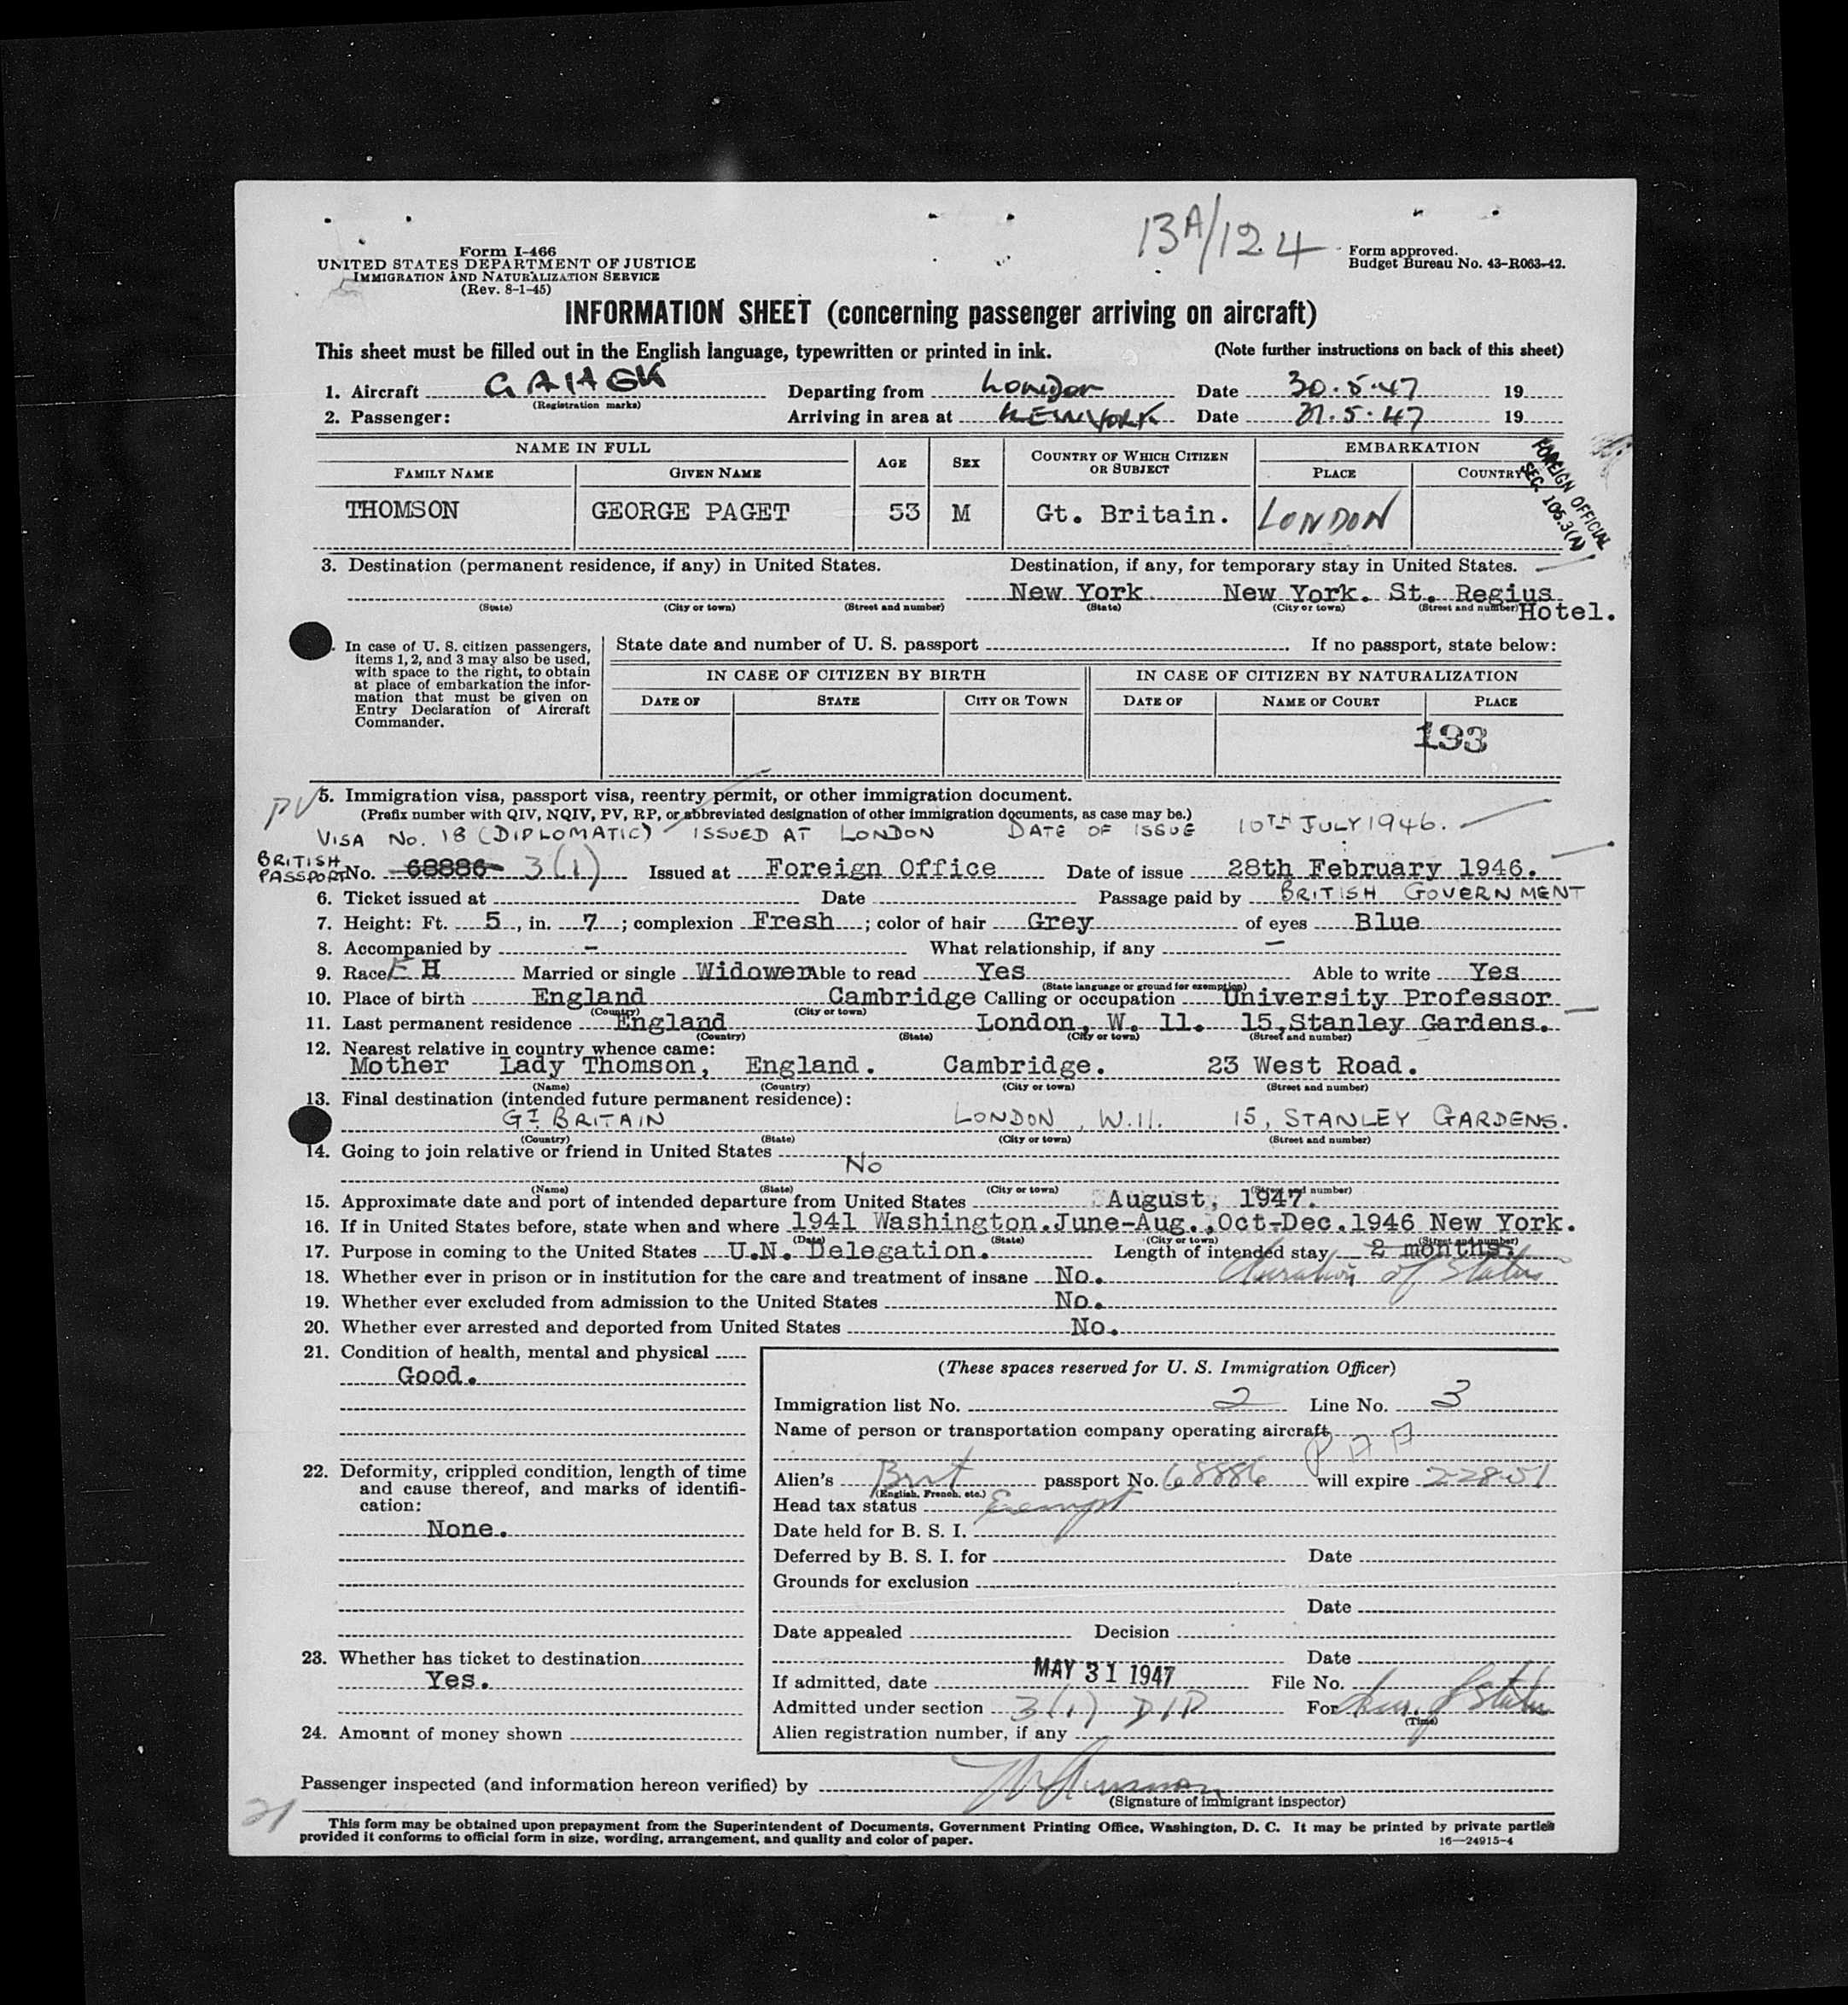 13A/124
Form I-466
UNITED STATES DEPARTMENT OF JUSTICE
IMMIGRATION AND NATURALIZATION SERVICE
(Rev. 8-1-45)
Form approved.
Budget Bureau No. 43-R063-42.
INFORMATION SHEET (concerning passenger arriving on aircraft)
This sheet must be filled out in the English language, typewritten or printed in ink. (Note further instructions on back of this sheet)
1. Aircraft G AHGK Departing from London Date 30.5.47 19
(Registration marks)
2. Passenger: Arriving in area at NEW YORK Date 31.5.47 19
NAME IN FULL AGE SEX COUNTRY OF WHICH CITIZEN OR SUBJECT EMBARKATION
FAMILY NAME GIVEN NAME PLACE COUNTRY
FOREIGN OFFICIAL
SEC. 105.3(A)
THOMSON GEORGE PAGET 53 M Gt. Britain. LONDON
3. Destination (permanent residence, if any) in United States. Destination, if any, for temporary stay in United States.
New York New York. St. Regius Hotel.
(State) (City or town) (Street and number) (State) (City or town) (Street and number)
In case of U. S. citizen passengers, items 1, 2, and 3 may also be used, with space to the right, to obtain at place of embarkation the information that must be given on Entry Declaration of Aircraft Commander.
State date and number of U. S. passport If no passport, state below:
IN CASE OF CITIZEN BY BIRTH IN CASE OF CITIZEN BY NATURALIZATION
DATE OF STATE CITY OR TOWN DATE OF NAME OF COURT PLACE
193
PV 5. Immigration visa, passport visa, reentry permit, or other immigration document.
(Prefix number with QIV, NQIV, PV, RP, or abbreviated designation of other immigration documents, as case may be.)
VISA No. 18 (DIPLOMATIC) ISSUED AT LONDON DATE OF ISSUE 10TH JULY 1946.
BRITISH PASSPORT No. 68886 3(1) Issued at Foreign Office Date of issue 28th February 1946.
6. Ticket issued at Date Passage paid by BRITISH GOVERNMENT
7. Height: Ft. 5, in. 7; complexion Fresh; color of hair Grey of eyes Blue
8. Accompanied by - What relationship, if any -
9. Race E H Married or single Widower Able to read Yes Able to write Yes
(State language or ground for exemption)
10. Place of birth England Cambridge Calling or occupation University Professor
(Country) (City or town)
11. Last permanent residence England London, W. 11. 15, Stanley Gardens.
(Country) (State) (City or town) (Street and number)
12. Nearest relative in country whence came:
Mother Lady Thomson, England. Cambridge. 23 West Road.
(Name) (Country) (City or town) (Street and number)
13. Final destination (intended future permanent residence):
GT BRITAIN LONDON, W.11. 15, STANLEY GARDENS.
(Country) (State) (City or town) (Street and number)
14. Going to join relative or friend in United States
No
(Name) (State) (City or town) (Street and number)
15. Approximate date and port of intended departure from United States August, 1947.
16. If in United States before, state when and where 1941 Washington. June-Aug., Oct-Dec. 1946 New York.
(Date) (State) (City or town) (Street and number)
17. Purpose in coming to the United States U.N. Delegation. Length of intended stay 2 months.
duration of Status
18. Whether ever in prison or in institution for the care and treatment of insane No.
19. Whether ever excluded from admission to the United States No.
20. Whether ever arrested and deported from United States No.
21. Condition of health, mental and physical
Good.
22. Deformity, crippled condition, length of time and cause thereof, and marks of identification:
None.
23. Whether has ticket to destination
Yes.
24. Amount of money shown
(These spaces reserved for U. S. Immigration Officer)
Immigration list No. 2 Line No. 3
Name of person or transportation company operating aircraft
P A A
Alien's Brit passport No. 68886 will expire 2-28-51
(English, French, etc.)
Head tax status Exempt
Date held for B. S. I.
Deferred by B. S. I. for Date
Grounds for exclusion
Date
Date appealed Decision
Date
If admitted, date MAY 31 1947 File No.
Admitted under section 3(1) DIP For dur. of Status
(Time)
Alien registration number, if any
Passenger inspected (and information hereon verified) by
(Signature of immigrant inspector)
21
This form may be obtained upon prepayment from the Superintendent of Documents, Government Printing Office, Washington, D. C. It may be printed by private parties
provided it conforms to official form in size, wording, arrangement, and quality and color of paper. 16—24915-4